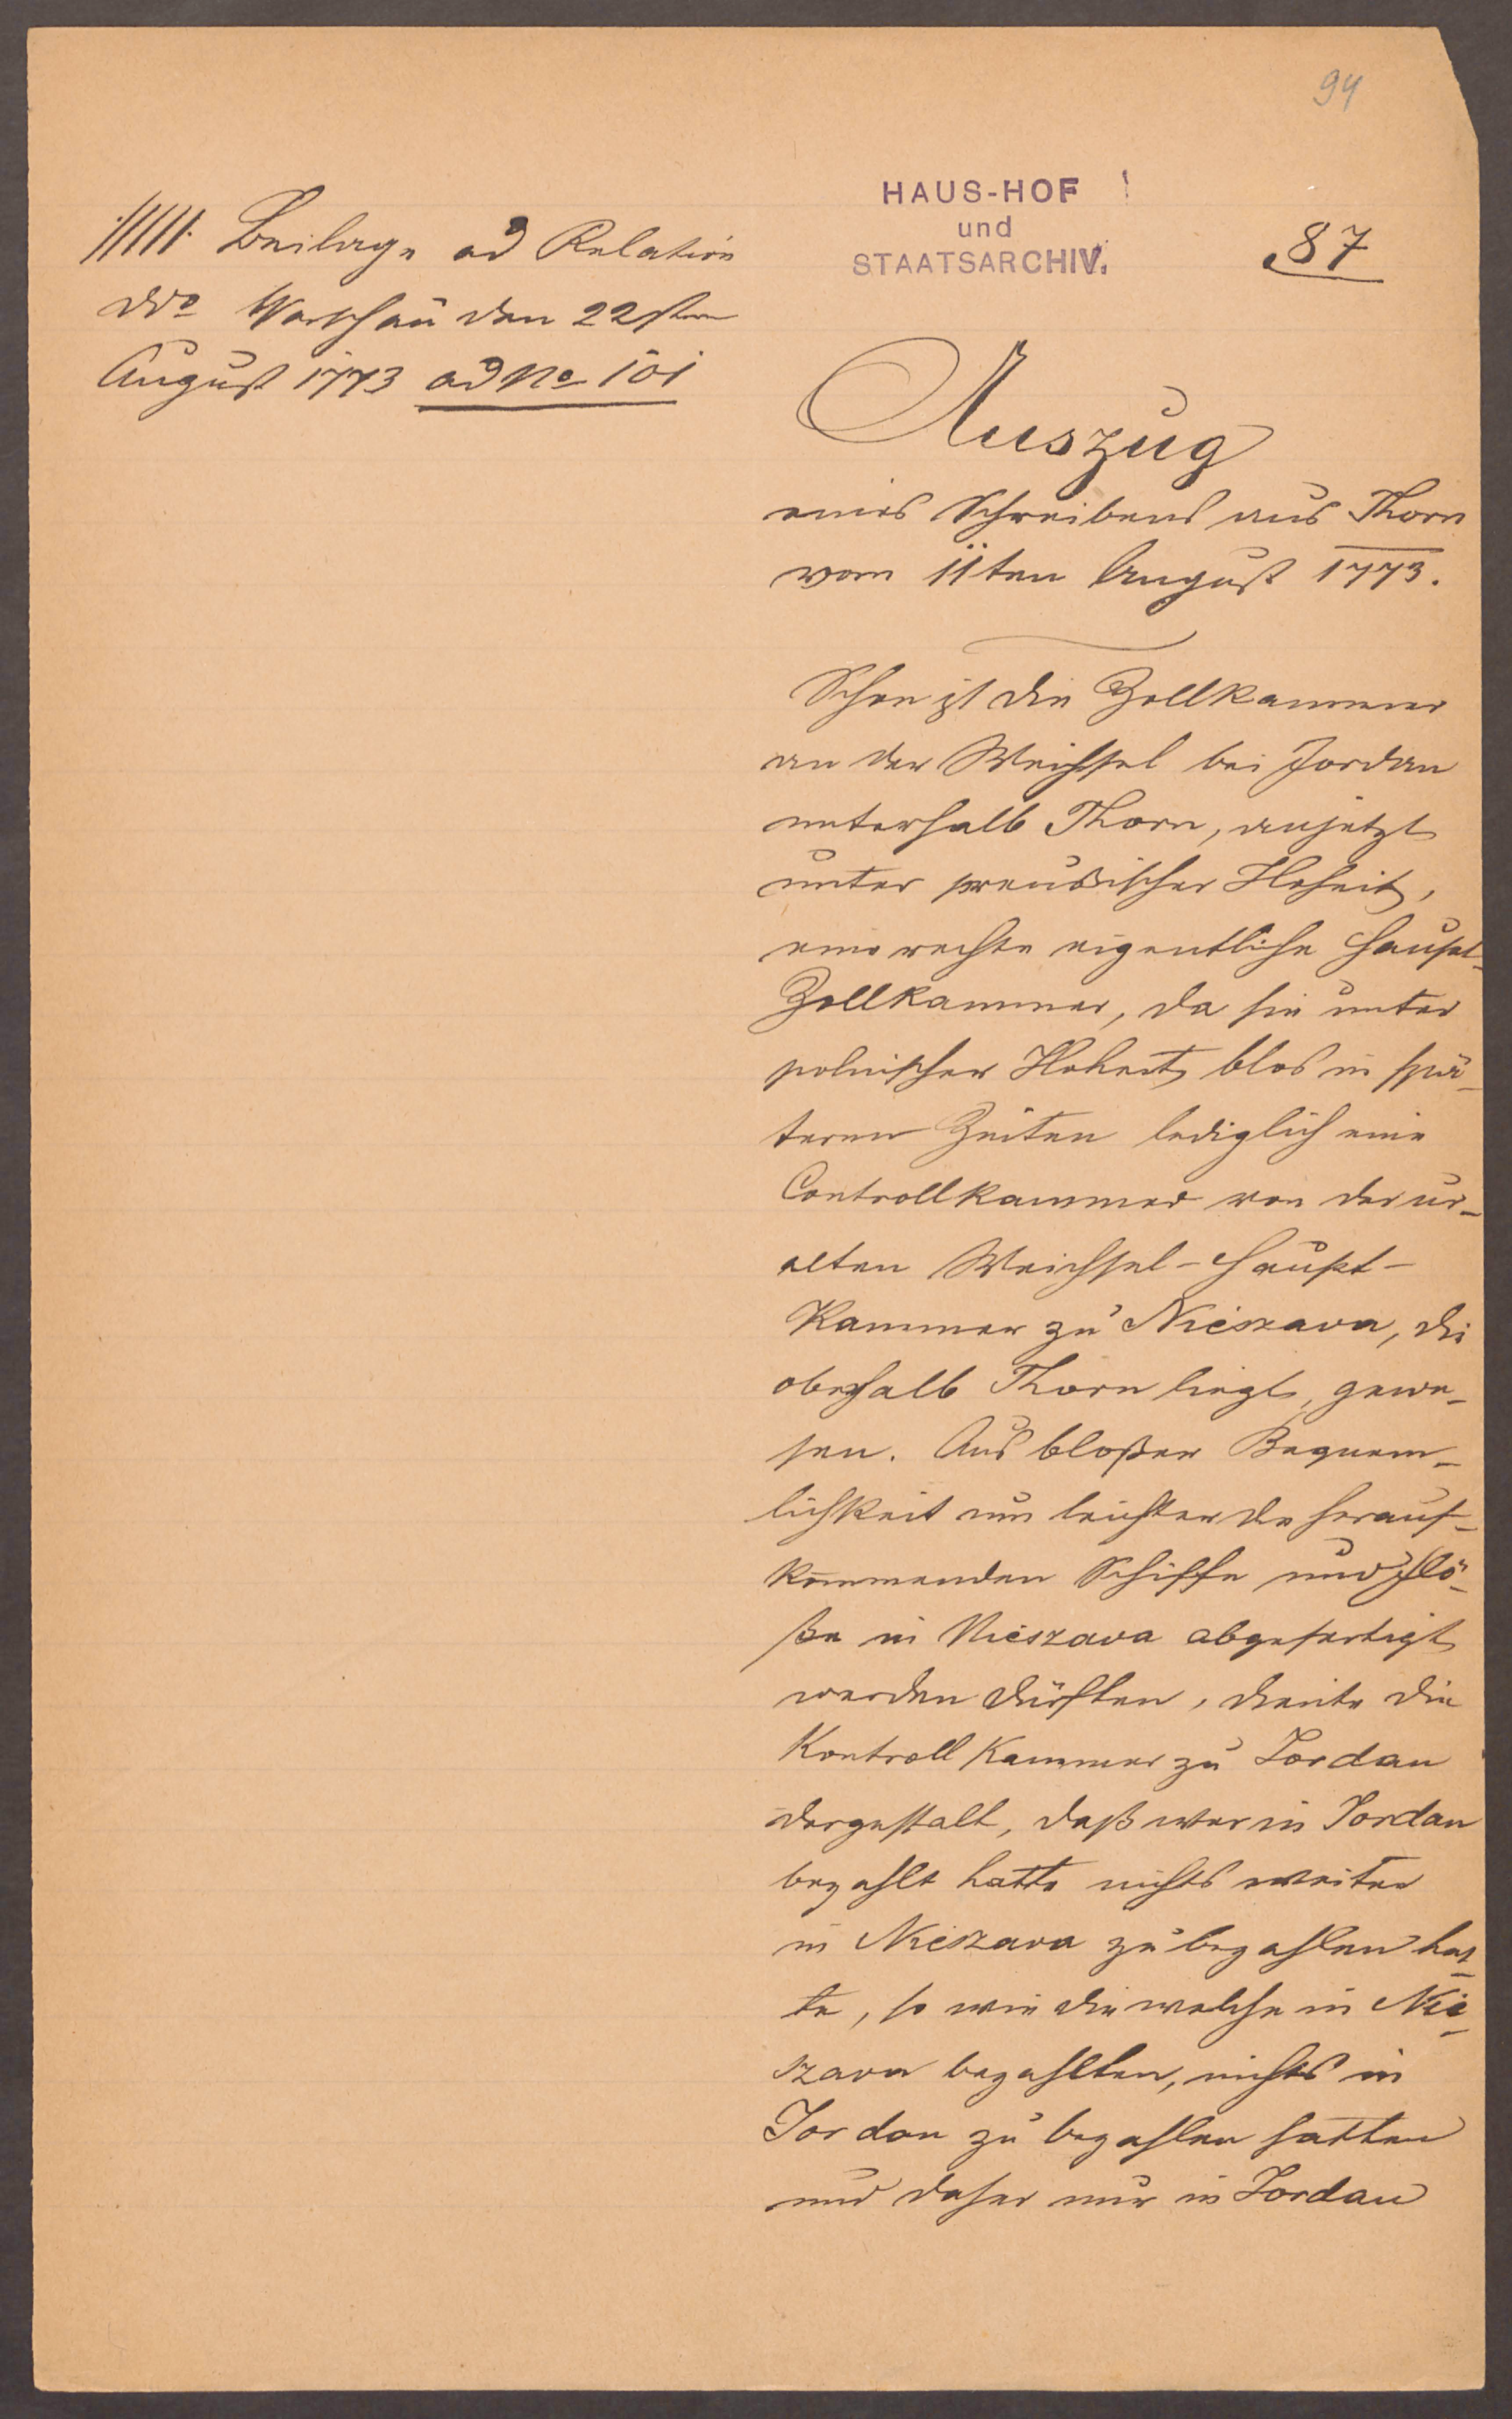 94
HAUS-HOF
und
STAATSARCHIV.
87
·/////· Beilage ad Relation
ddo Warschau den 22sten
August 1773 ad No 101
Auszug
eines Schreibens aus Thorn
vom 11ten August 1773.
Schon ist die Zollkammer
an der Weichsel bei Jordan
unterhalb Thorn, anjetzt
unter preussischer Hoheit,
eine rechte eigentliche Haupt-
Zollkammer, da sie unter
polnischer Hoheit blos in spä-
teren Zeiten lediglich eine
Controllkammer von der ur-
alten Weichsel-Haupt-
Kammer zu Nieszava, die
oberhalb Thorn liegt, gewe-
sen. Aus bloßer Bequem-
lichkeit um leichter die herauf-
kommenden Schiffe und Flö-
ße in Nieszava abgefertigt
werden dürften, diente die
Kontroll Kammer zu Jordan
dergestalt, daß wer in Jordan
bezahlt hatte nichts weiter
in Nieszava zu bezahlen hat-
te, so wie die welche in Nie-
szava bezahlten, nichts in
Jordan zu bezahlen hatten
und daher nur in Jordan